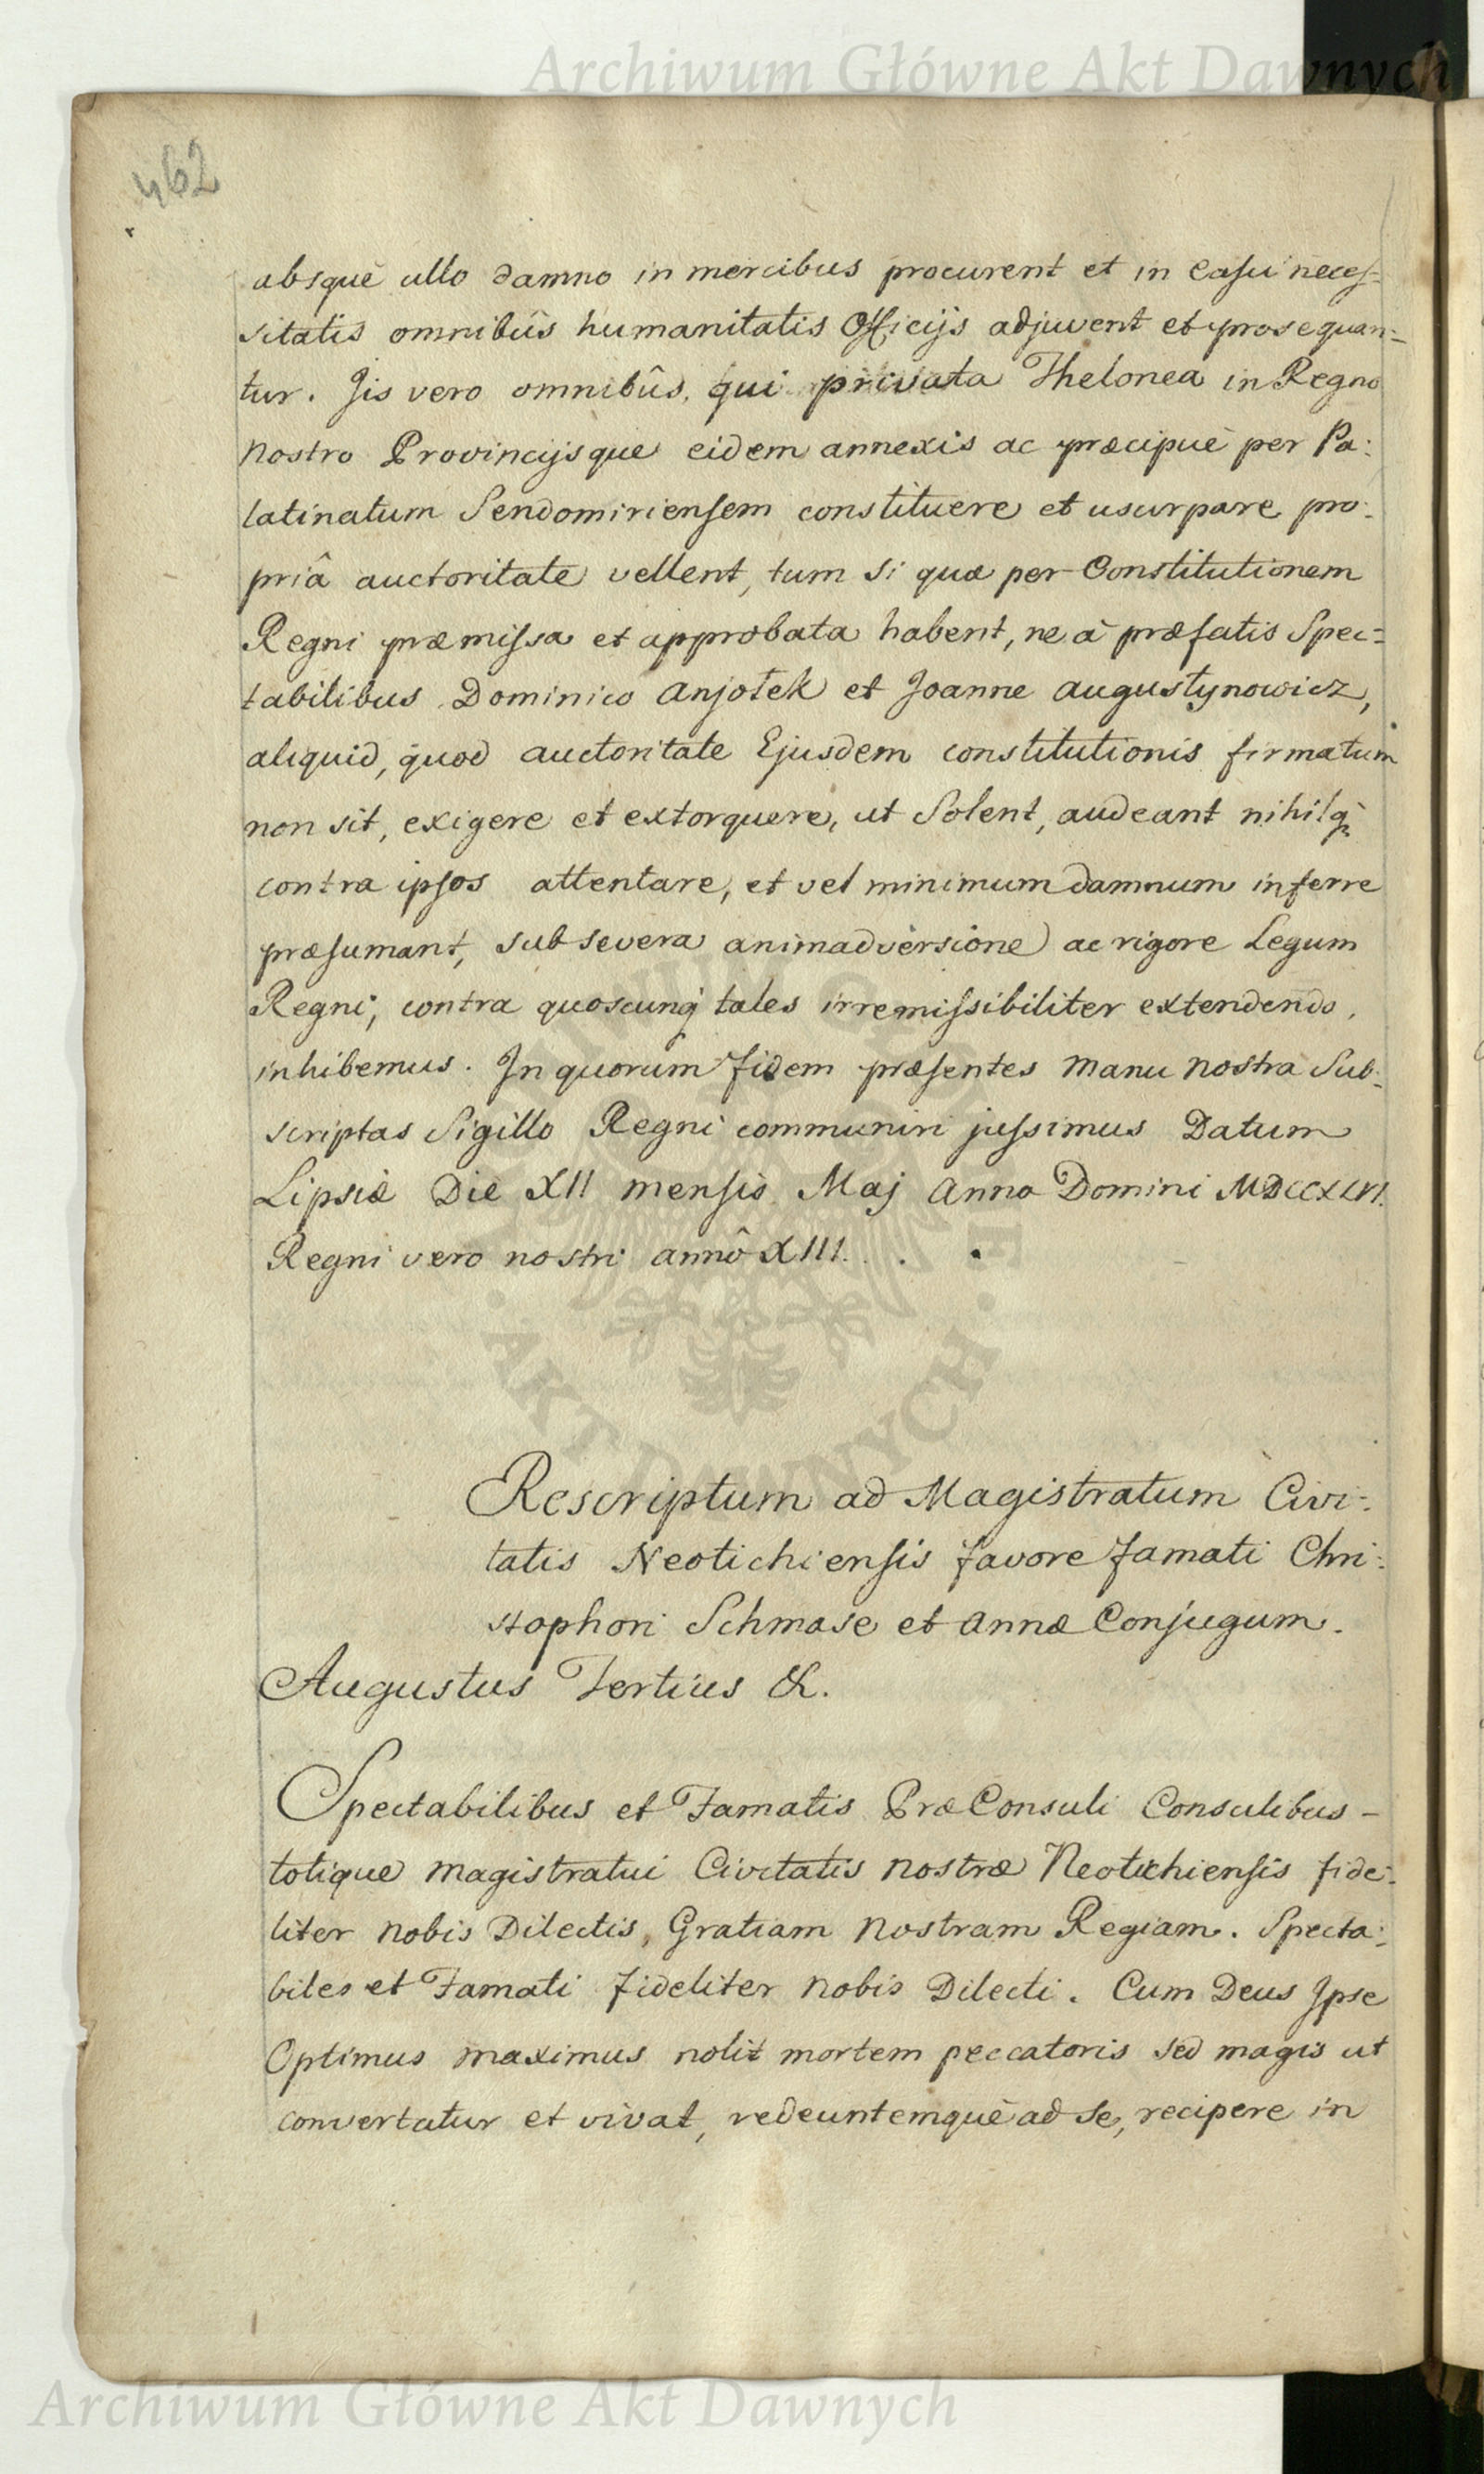 Archiwum Główne Akt Dawnych
462
absquè ullo damno in mercibus procurent et in Casu neces-
sitatis omnibûs humanitatis Officijs adjuvent et prosequan-
tur. Jis vero omnibûs, qui privata Thelonea in Regno
nostro Provincijsque eidem annexis ac præcipuè per Pa:
latinatum Sendomiriensem constituere et usurpare pro:
priâ auctoritate vellent, tum si quæ per Constitutionem
Regni præmissa et approbata habent, ne à præfatis Spec=
tabilibus Dominico Anjotek et Joanne Augustynowicz,
aliquid, quod auctoritate Ejusdem constitutionis firmatum
non sit, exigere et extorquere, ut Solent, audeant nihilq̀
contra ipsos attentare, et vel minimum damnum inferre
præsumant, sub severa animadversione ac rigore Legum
Regni, contra quoscunq̀ tales irremissibiliter extendendo,
inhibemus. In quorum fidem præsentes Manu nostra Sub:
scriptas Sigillo Regni communiri jussimus Datum
Lipsiæ Die XII mensis Maj Anno Domini MDCCXLVI.
Regni vero nostri annô XIII. . .
Rescriptum ad Magistratum Civi:
tatis Neotichiensis favore famati Chri:
stophori Schmase et Annæ Conjugum.
Augustus Tertius &.
Spectabilibus et Famatis PræConsuli Consulibus -
totique Magistratui Civitatis nostræ Neotichiensis fide:
liter nobis Dilectis, Gratiam Nostram Regiam. Specta:
biles et Famati fideliter nobis Dilecti. Cum Deus Ipse
Optimus maximus nolit mortem peccatoris sed magis ut
convertatur et vivat, redeuntemquè ad se, recipere in
AKT DAWNYCH
Archiwum Główne Akt Dawnych